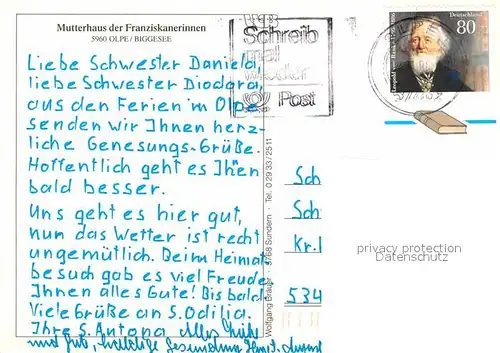 Mutterhaus der Franziskanerinnen
5960 OLPE / BIGGESEE
Liebe Schwester Daniela,
liebe Schwester Diodora,
aus den Ferien im Olpe
senden wir Ihnen herz-
liche Genesungs-Grüße.
Hoffentlich geht es Ihnen
bald besser.
Uns geht es hier gut,
nun das Wetter ist recht
ungemütlich. Beim Heimat
besuch gab es viel Freude
Ihnen alles Gute! Bis bald
Viele Grüße an S. Odilia.
Ihre S. Antona Alles
und Gute,
Wolfgang Bräuer · 5768 Sundern · Tel. 0 29 33 / 25 11
Schreib
mal
wieder
Post
Deutschland
80
Leopold von Ranke 1795-1886
Sch
Sch
Kr.
534
privacy protection
Datenschutz